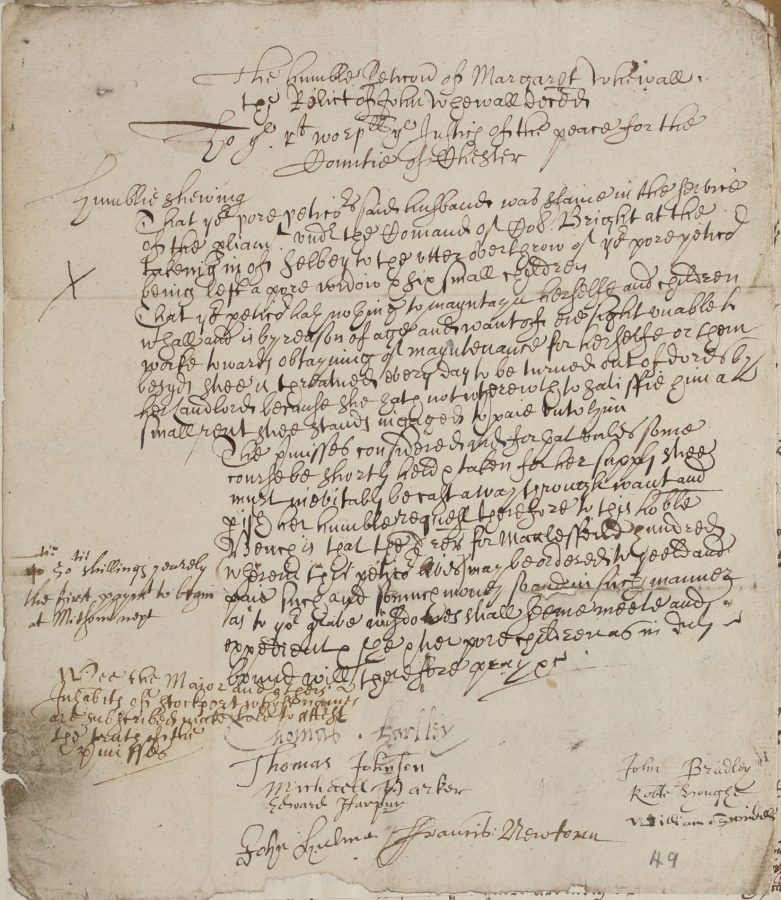 The humble Peticon of Margarett Whewall
the Relict of John Whewall deced
To ye rt worpll ye Justices of the peace for the
Countie of Chester
Humblie shewing
That yor pore peticor said husband was slaine in the service
of the pliamt undr the Comand of Col: Bright at the
takeing in of Selbey to the utter overthrow of yor pore peticor
being left a pore widow & six small children
That yor peticor hath nothing to mayntayn herselfe and children
whall and is by reason of age and want of eie sight unable to
worke towards obtayning of mayntenance for herselfe or them
besyds shee is threatned every day to be turned out of dores by
her landlord because she hath not wherewth to satisffie him a
small rent shee stands ingaged to paie unto him
The pmisses considered and for that unles some
course be shortly held & taken for her supply shee
must inevitably be cast away through want and
pish her humble request therefore to this noble
Bench is that the Trer for Macclesfeild hundred
(wherein this peticor lives) may be ordered to yeeld and
paie such and somuch money & in such manner
as to yor grave wisdoves shall seeme meete and
expedient & she & her pore children as in duty
bound will therefore pray &c
50 shillings yearely
the first paymt to begin
at Midsomr next
Wee the Maior and others
Inhabits of Stockport whose names
are subscribed make bold to attest
the truth of the
pmisses
Thomas Harlley
Thomas Johnson
Michaell Parker
Edward Harpur
John Hulme Francis Newtown
John Bradley
Robte Hough
William Swindells
49